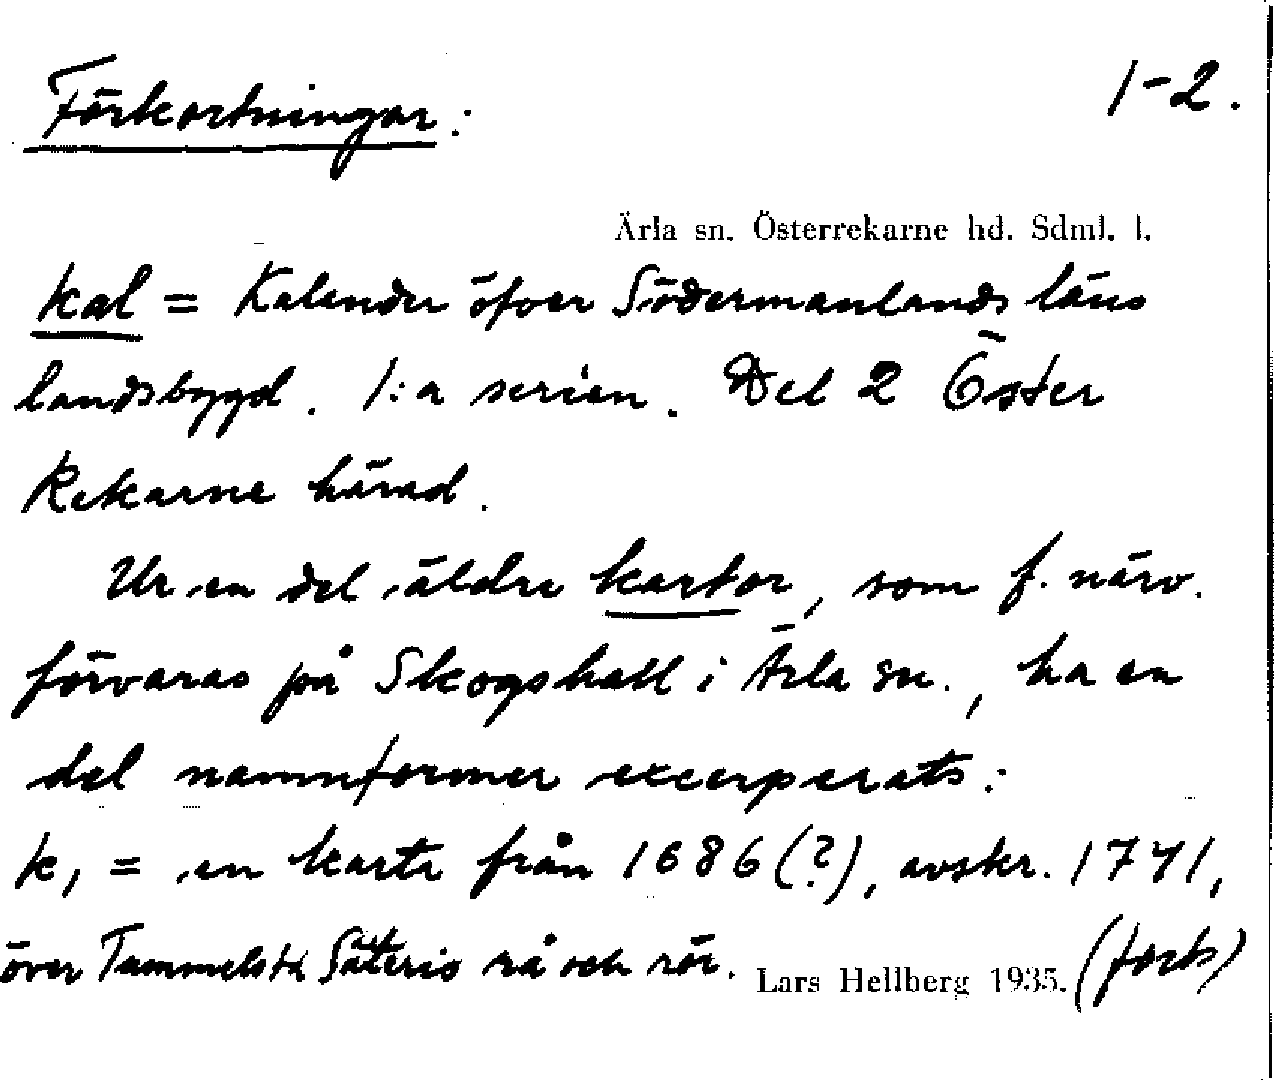 Förkortningar: 1-2.
Ärla sn. Österrekarne hd. Sdml. l.
kal = Kalender öfver Södermanlands läns
landsbygd. 1:a serien. Del 2 Öster
Rekarne härad.
Ur en del äldre kartor, som f. närv.
förvaras på Skogshall i Ärla sn., ha en
del namnformer excerperats:
k1 = en karta från 1686(?), avskr. 1741,
över Tummelsta Säteris rå och rör. (forts)
Lars Hellberg 1935.